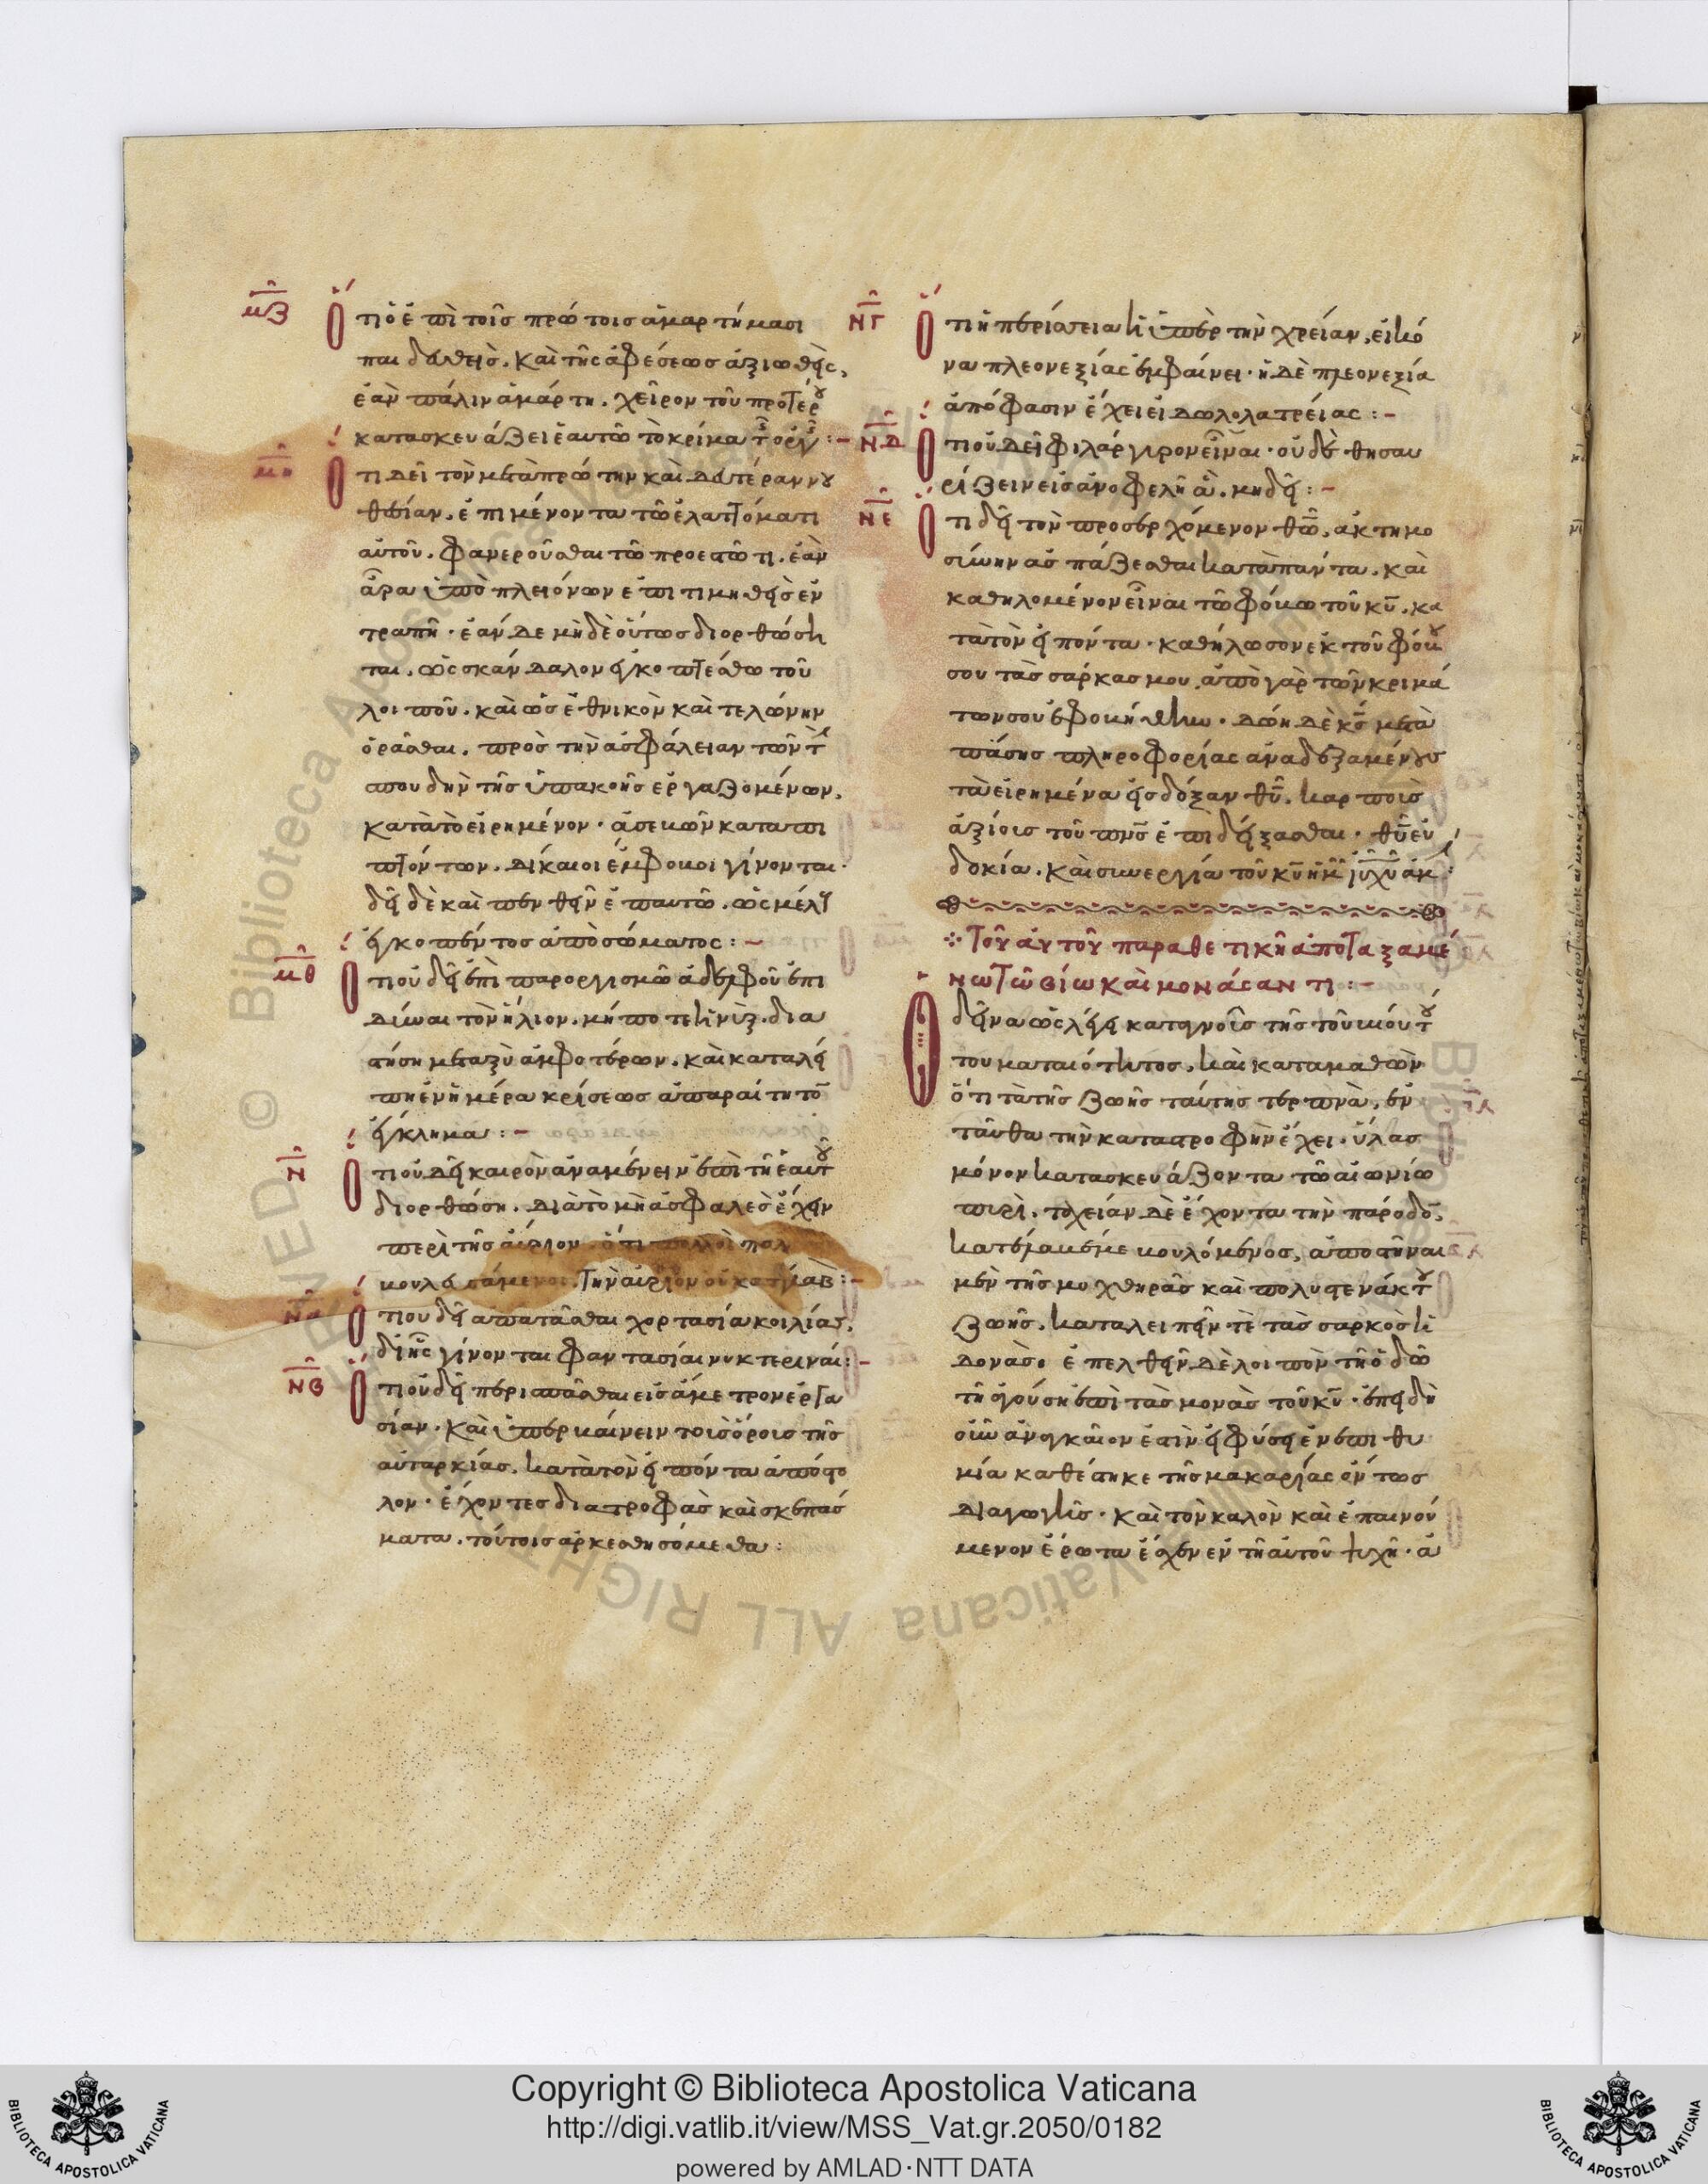 μζ
Ὅτι ὁ ἐπὶ τοῖς πρώτοις ἁμαρτήμασι
παιδευθεὶς. καὶ τῆς ἀφέσεως ἀξιωθεὶς,
ἐὰν πάλιν ἁμάρτη. χεῖρον τοῦ προτέρου
κατασκευάζει ἑαυτῶ τὸ κρίμα τῆς ὀργῆς :-
μη
Ὅτι δεῖ τὸν μετὰ πρώτην καὶ δευτέραν νου
θεσίαν. ἐπιμένοντα τῶ ἐλαττώματι
αὐτοῦ. φανεροῦσθαι τῶ προεστῶτι. ἐὰν
ἆρα ὑπὸ πλειόνων ἐπιτιμηθεὶς ἐν
τραπῆ. ἐὰν δὲ μηδὲ οὕτως διορθώση
ται. ὡς σκάνδαλον ἐκκοπτέσθω τοῦ
λοιποῦ. καὶ ὡς ἐθνικὸν καὶ τελώνην
ὁρᾶσθαι. πρὸς τὴν ἀσφάλειαν τῶν τ
σπουδὴν τῆς ὑπακοῆς ἐργαζομένων,
κατὰ τὸ εἰρημένον. ἀσεβῶν καταπι
πτόντων. δίκαιοι ἔμφοβοι γίνονται.
δεῖ δὲ καὶ πενθεῖν ἐπ αυτῶ. ὡς μέλους
ἐκκοπέντος ἀπὸ σώματος :-
μθ
Ὅτι οὐ δεῖ ἐπὶ παροργισμῶ ἀδελφοῦ ἐπι
δύναι τὸν ἥλιον. μήποτε ἡ νὺξ. δια
στήση μεταξὺ ἀμφοτέρων. καὶ καταλεί
πη ἐν ἡμέρα κρίσεως ἀπαραίτητον
ἔγκλημα :-
ν
Ὅτι οὐ δεῖ καιρὸν ἀναμένειν ἐπὶ τῆ ἑαυτοῦ
διορθώση. διὰ τὸ μὴ ἀσφαλὲς ἔχειν
περὶ τῆς αὔριον. ὅτι πολλοὶ πολ
βουλευσάμενοι. τὴν αὔριον οὐ κατέλαβ :-
να
Ὅτι οὐ δεῖ ἀπατᾶσθαι χορτασία κοιλίας,
δι ῆς γίνονται φαντασίαι νυκτεριναί :-
νβ
Ὅτι οὐ δεῖ περισπᾶσθαι εἰς ἄμετρον ἐργα
σίαν. καὶ ὑπερβαίνειν τοὺς ὅρους τῆς
αὐταρκίας. κατὰ τὸν εἰπόντα ἀπόστο
λον. ἔχοντες διατροφὰς καὶ σκεπάσ
ματα. τούτοις ἀρκεσθησόμεθα :
νγ
Ὅτι ἡ περίστεια ἡ ὑπὲρ τὴν χρείαν. εἰκό
να πλεονεξίας ἐμφαίνει. ἡ δὲ πλεονεξία
ἀπόφασιν ἔχει εἰδωλολατρείας :-
νδ
Ὅτι οὐ δεῖ φιλάργυρον εἶναι. οὐδὲ θησαυ
ρίζειν εἰς ἀνοφελῆ ἃ. μὴ δεῖ :-
νε
Ὅτι δεῖ τὸν προσερχόμενον θῶ. ἀκτημο
σύνην ἀσπάζεσθαι κατὰ πάντα. καὶ
καθηλομένον εἶναι τῶ φόβω τοῦ κυ. κα
τὰ τὸν εἰπόντα. καθήλωσον ἐκ τοῦ φόβου
σου τὰς σάρκας μου. ἀπὸ γὰρ τῶν κριμά
των σου ἐφοβήθην. δώη δὲ κς μετὰ
πάσης πληροφορίας ἀναδεξαμένους
τὰ εἰρημένα εἰς δόξαν θυ. καρποὺς
ἀξίους τοῦ πνς ἐπιδείξασθαι. θυ εὐ
δοκία. καὶ συνεργία τοῦ κυ ἡμ ιυ χυ ἀμ:
Τοῦ αὐτοῦ παραθετικὴ ἀποταξαμέ
νω τῶ βίω καὶ μονάσαντι :-
Ὁ δεῖνα ὡς λέγει καταγνοὺς τῆς τοῦ βίου τού
του ματαιότητος. καὶ καταμαθὼν
ὅτι τὰ τῆς ζωῆς ταύτης τερπνὰ. ἐν
ταῦθα τὴν καταστροφὴν ἔχει. ὕλας
μόνον κατασκευάζοντα τῶ αἰωνίω
πυρὶ. ταχείαν δὲ ἔχοντα τὴν πάροδον,
βουλόμενος, ἀποστῆναι
μὲν τῆς μοχθηρᾶς καὶ πολυστενάκτου
ζωῆς. καταλειπεῖν τὲ τὰς σαρκὸς ἡ
δονὰς. ἐπελθεῖν δὲ λοιπὸν τῆ ὁδῶ
τῆ ἀγούση ἐπὶ τὰς μονὰς τοῦ κυ. ἐπειδὴ
οὖν ἀναγκαῖον ἐστὶν ἐν ἐπιθυ
μία καθέστηκε τῆς μακαρίας ὄντως
διαγωγῆς. καὶ τὸν καλὸν καὶ ἐπαινού
μενον ἔρωτα ἔσχεν ἐν τῆ αὐτοῦ ψυχῆ. ἀ
Copyright © Biblioteca Apostolica Vaticana
http://digi.vatlib.it/view/MSS_Vat.gr.2050/0182
powered by AMLAD·NTT DATA
BIBLIOTECA APOSTOLICA VATICANA
BIBLIOTECA APOSTOLICA VATICANA